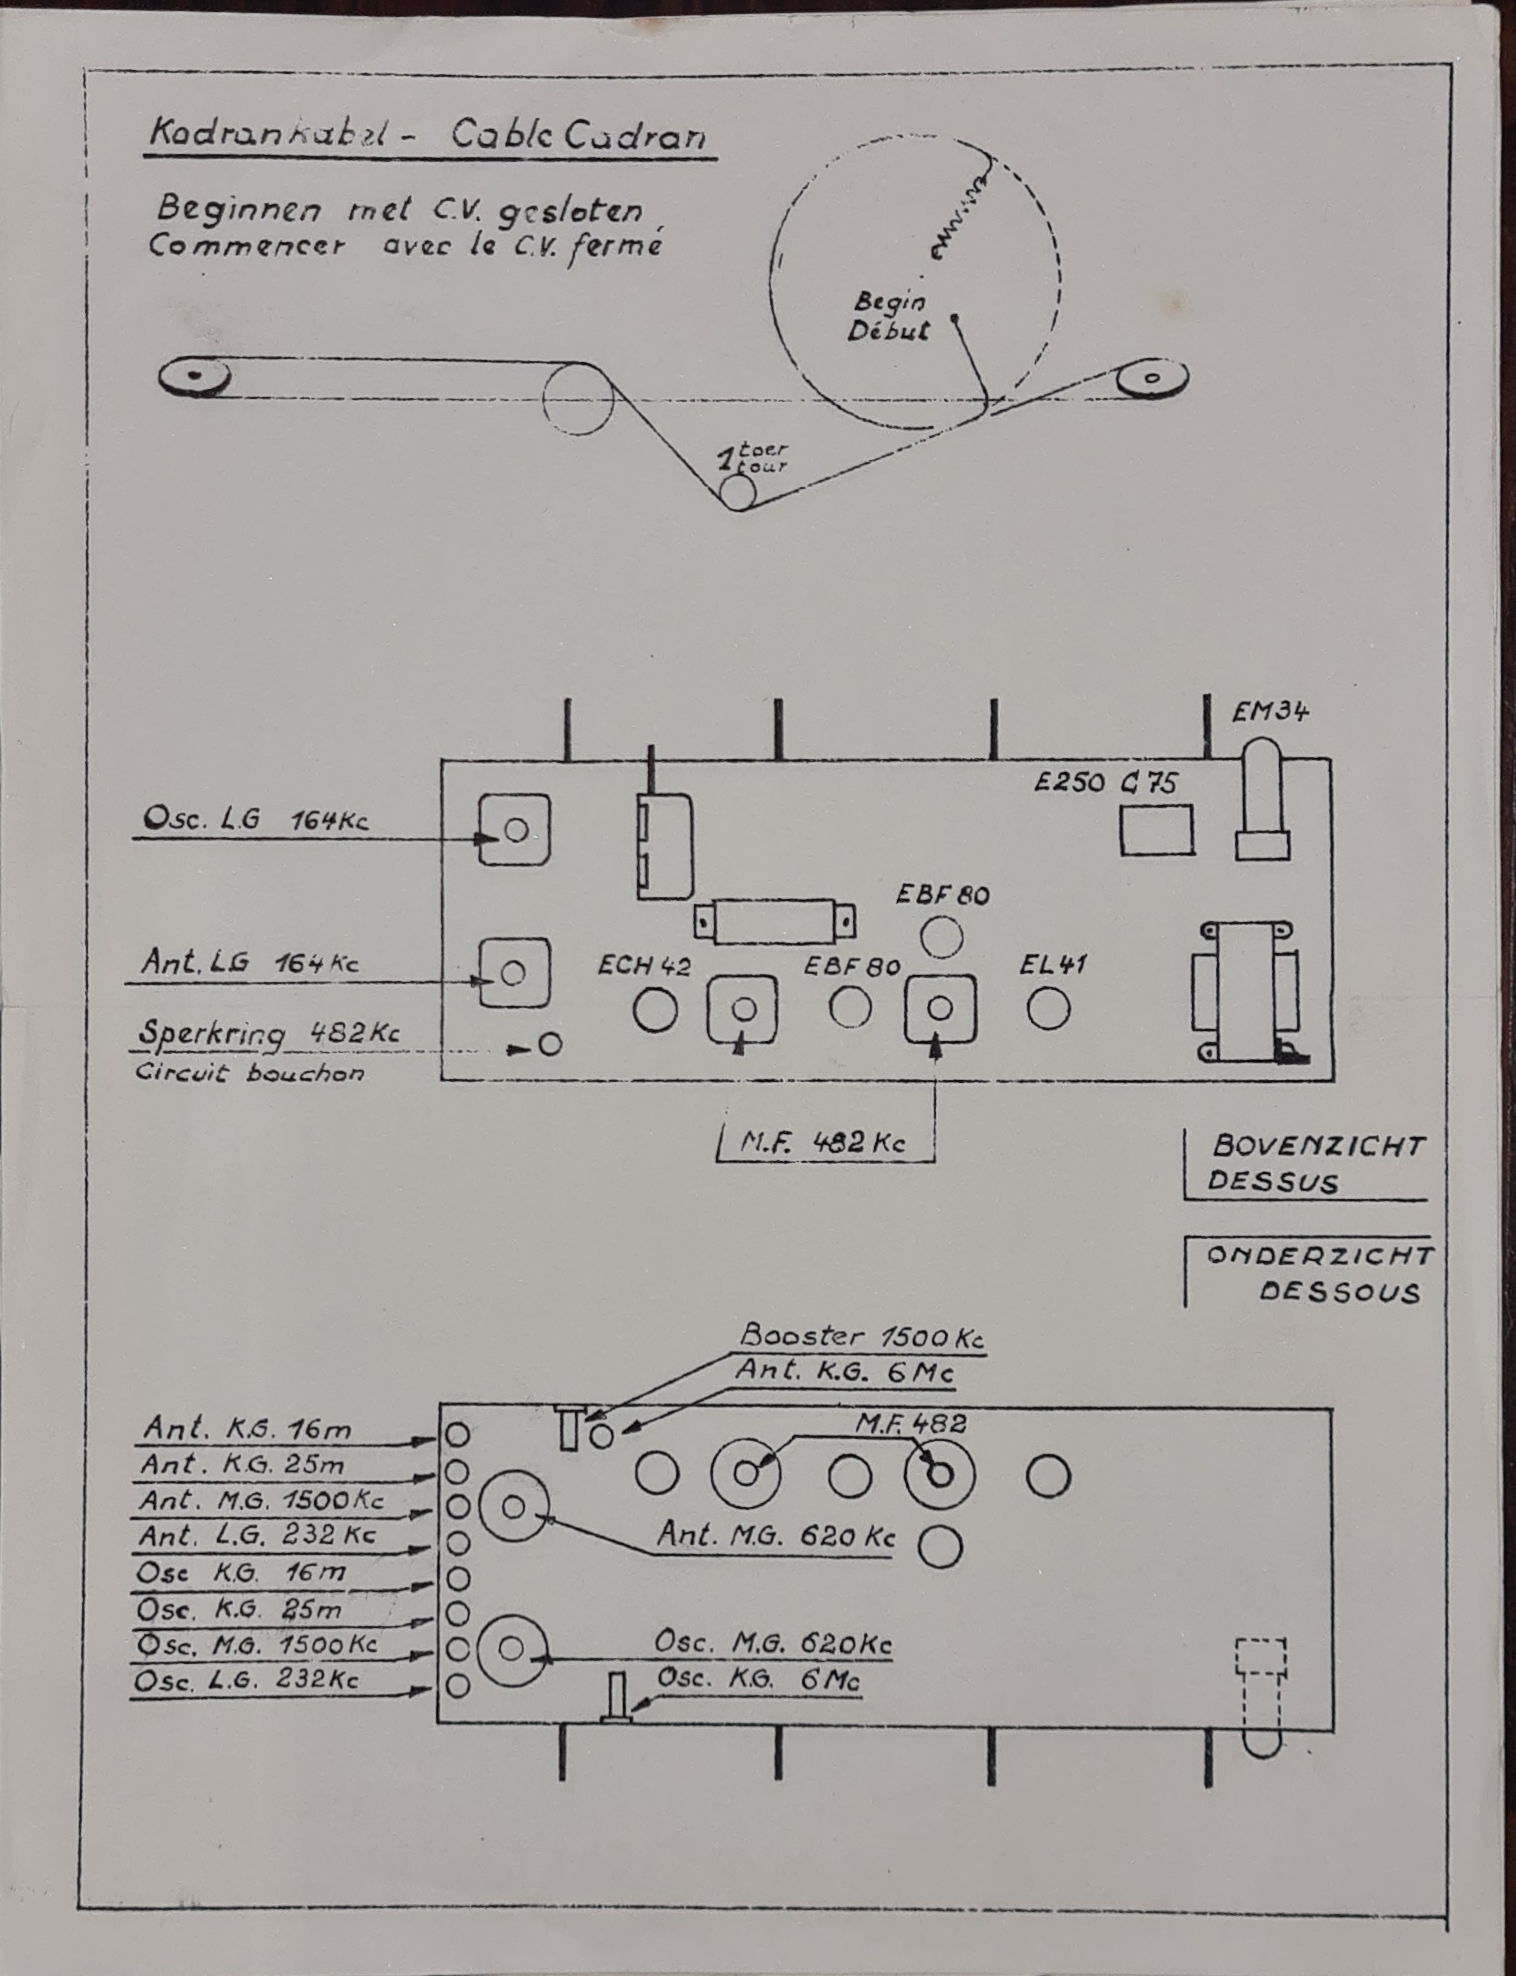 Kadrankabel - Cable Cadran
Beginnen met C.V. gesloten
Commencer avec le C.V. fermé
Begin
Début
1 toer
tour
EM34
E250 C75
Osc. L.G 164Kc
EBF 80
Ant. LG 164Kc
ECH 42
EBF 80
EL41
Sperkring 482Kc
Circuit bouchon
M.F. 482 Kc
BOVENZICHT
DESSUS
ONDERZICHT
DESSOUS
Booster 1500 Kc
Ant. K.G. 6 Mc
M.F. 482
Ant. K.G. 16m
Ant. K.G. 25m
Ant. M.G. 1500Kc
Ant. L.G. 232 Kc
Ant. M.G. 620 Kc
Osc K.G. 16m
Osc. K.G. 25m
Osc. M.G. 1500Kc
Osc. L.G. 232Kc
Osc. M.G. 620Kc
Osc. K.G. 6Mc